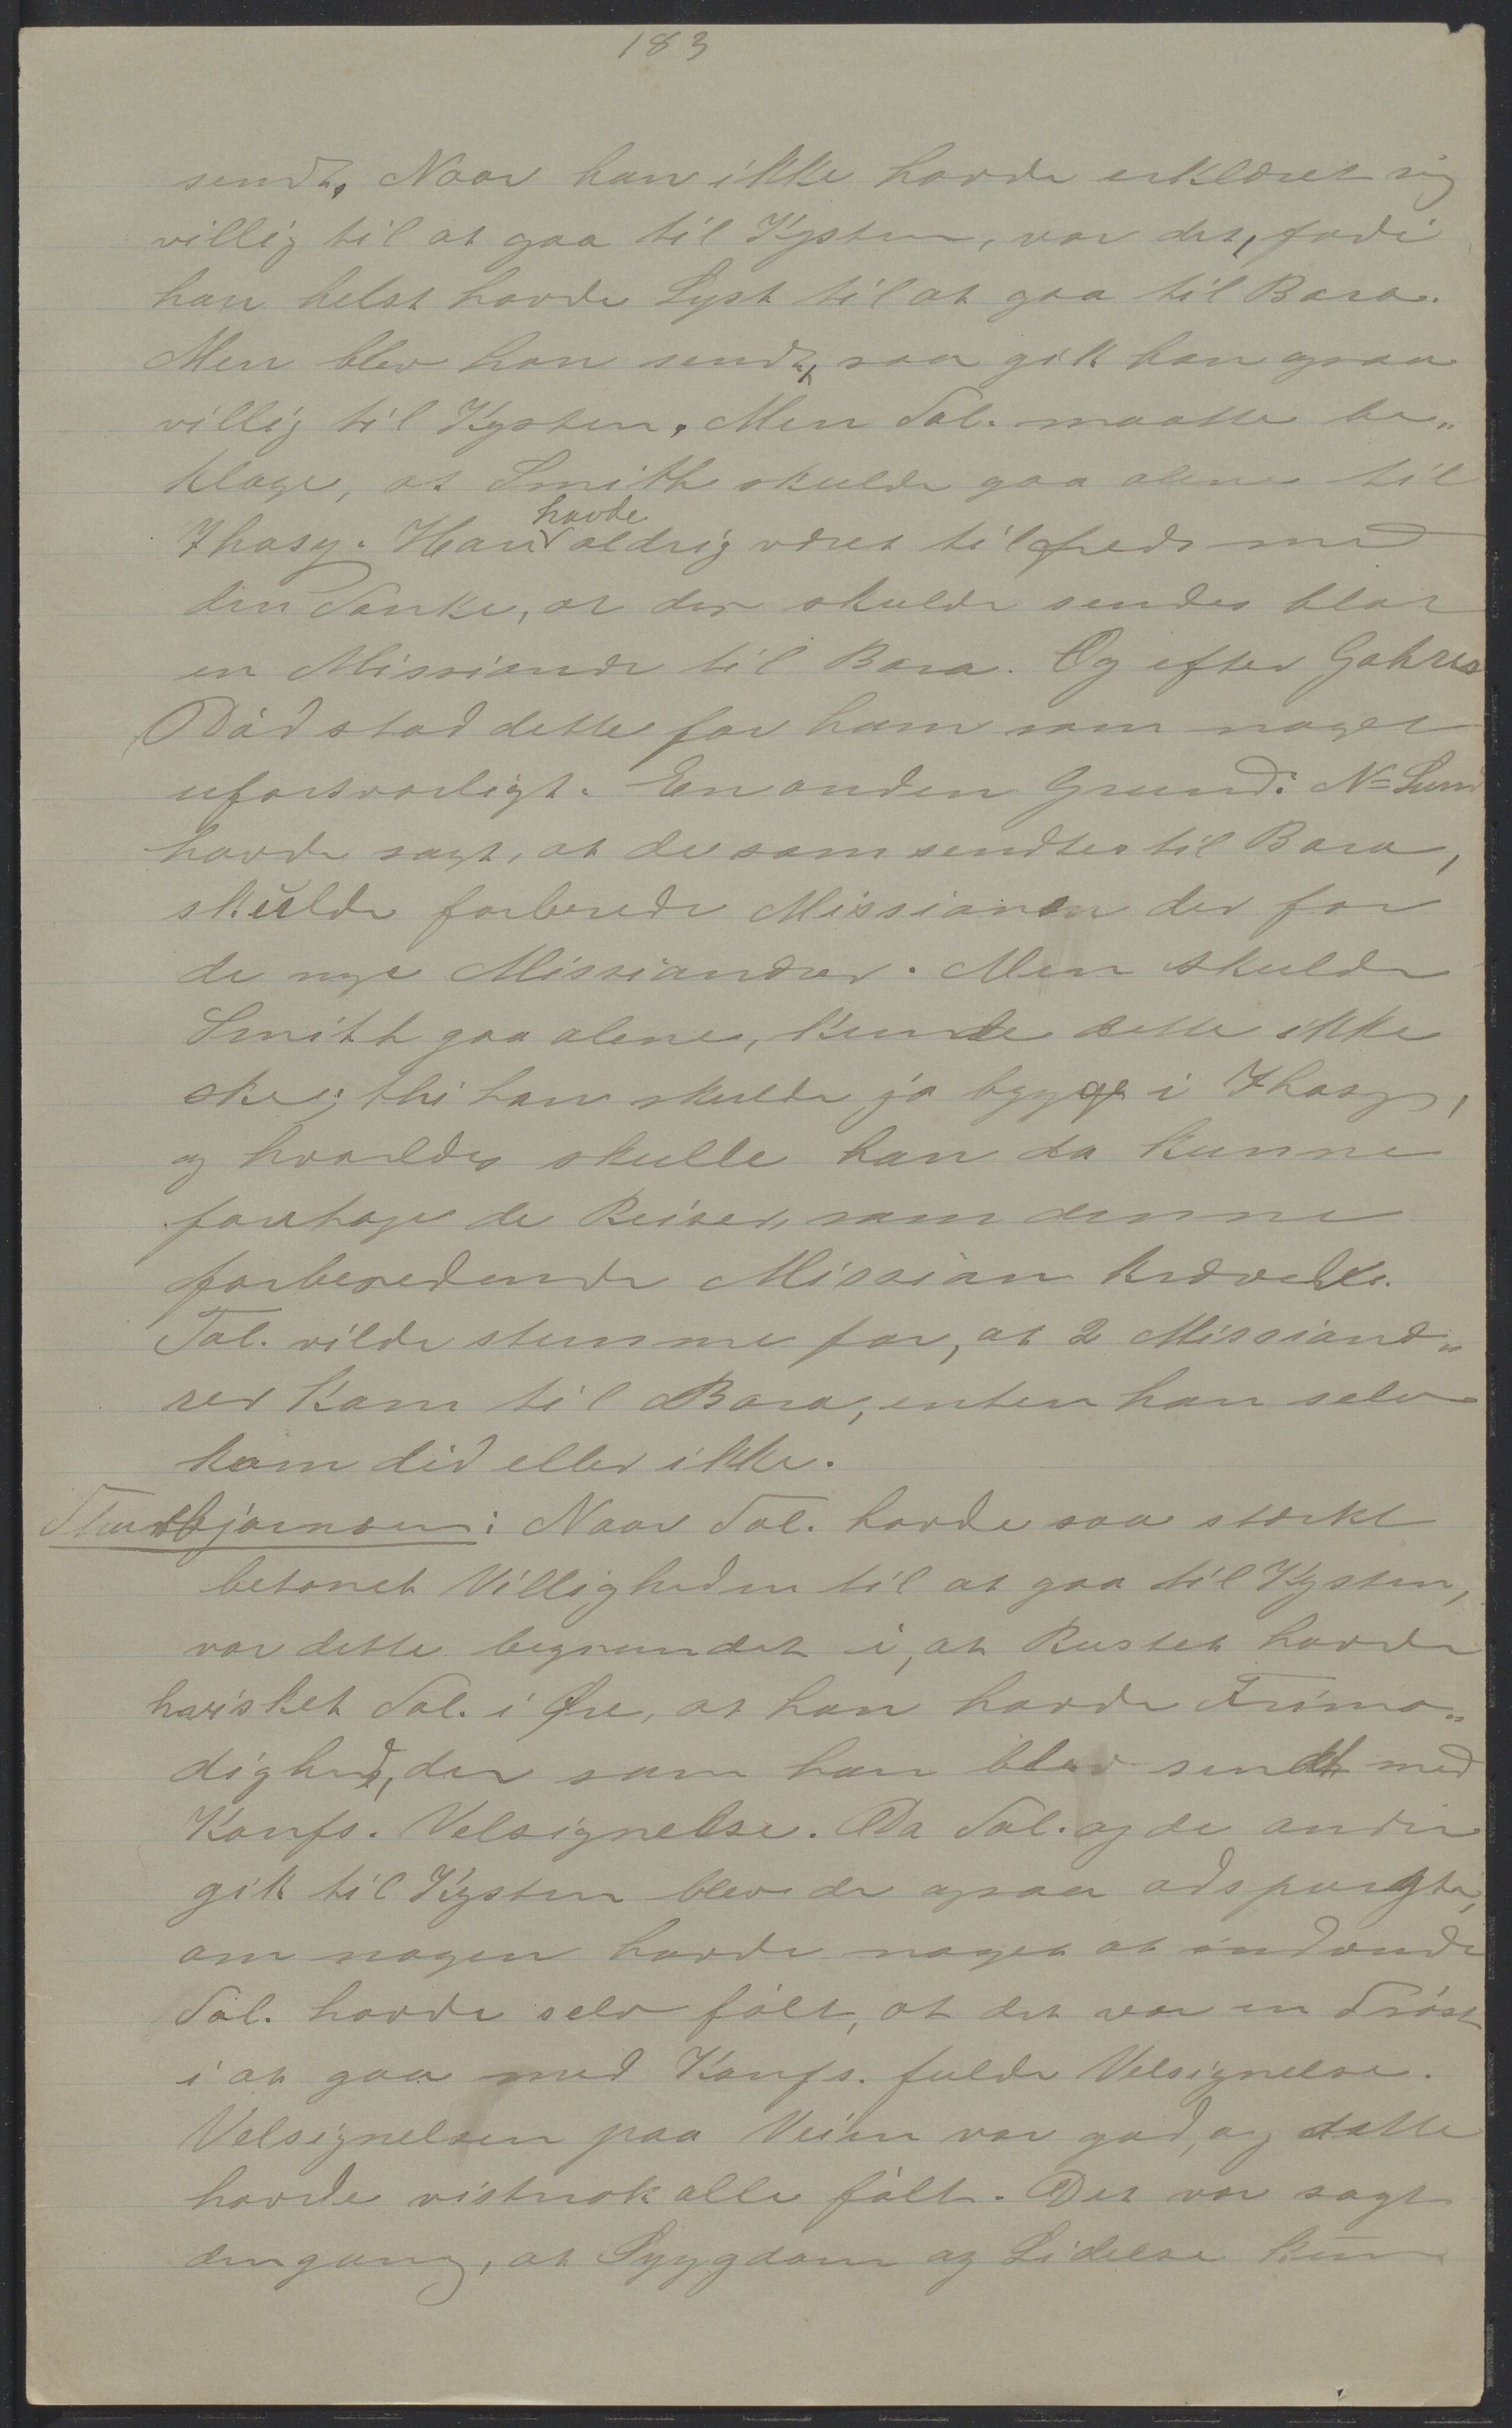 183
sendt, Naar han ikke havde erklæret sig
villig til at gaa til Kysten, var det, fordi
han helst havde Lyst til at gaa til Bara.
Men blev han sendt, saa gik han ogsaa
villig til Kysten. Men Tal. maatte be„
klage, at Smith skulde gaa alene til
Ihosy. Han havde aldrig været tilfreds med
den Tanke, at der skulde sendes blot
en Missionær til Bara. Og efter Gahres
Död stod dette for ham som noget
uforsvarligt. En anden Grund: N= Lund
havde sagt, at de som sendtes til Bara,
skulde forberede Missionen der for
de nye Missionærer. Men skulde
Smith gaa alene, kunde dette ikke
ske; thi han skulde jo bygge i Ihosy,
og hvorledes skulle han da kunne
foretage de Reiser, som denne
forberedende Mission krævede.
Tal. vilde stemme for, at 2 Missionæ„
rer kom til Bara, enten han selv
kom did eller ikke.
Thorbjørnsen: Naar Tal. havde saa stærkt
betonet Villigheden til at gaa til Kysten,
var dette begrundet i, at Rustet havde
hvisket Tal. i Øre, at han havde Frimo„
dighed, der som han blev sendt med
Konfs. Velsignelse. Da Tal. og de andre
gik til Kysten blev de ogsaa adspurgte,
om nogen havde noget at indvende
Tal. havde selv fölt, at det var en Tröst
i at gaa med Konfs. fulde Velsignelse.
Velsignelsen paa Veien var god, og dette
havde vistnok alle fölt. Det var sagt
dengang, at Sygdom og Lidelse kun